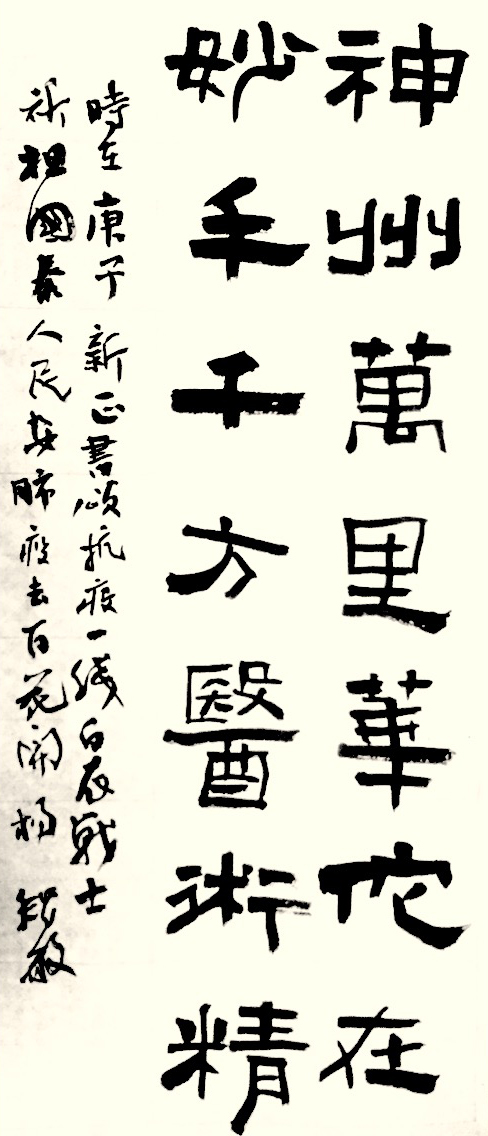 神州萬里華佗在
妙手千方醫術精
時在庚子新正書頌抗疫一綫白衣戰士
祈祖國泰人民安肺疫去百花開楊敏